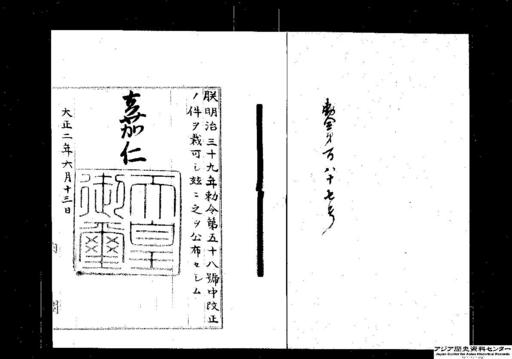 勅令第百八十七号
朕明治三十九年勅令第五十八號中改正
ノ件ヲ裁可シ茲ニ之ヲ公布セシム
嘉仁
天皇
御璽
大正二年六月十三日
内閣
アジア歴史資料センター
Japan Center for Asian Historical Records